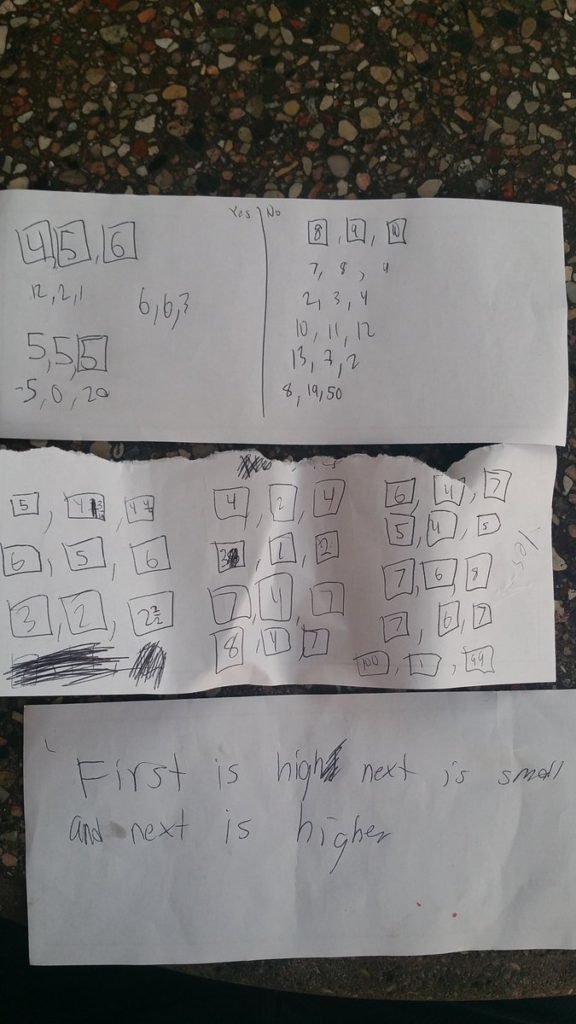 Yes No
4, 5, 6
12, 2, 1
6, 6, 3
5, 5, 5
-5, 0, 20
8, 9, 10
7, 8, 4
2, 3, 4
10, 11, 12
13, 7, 2
8, 19, 50
5, 4
6, 5, 6
3, 2, 2
4, 2, 4
3, 1, 2
7, 4, 7
8, 4, 7
6, 4, 7
5, 4, 5
7, 6, 8
7, 6, 7
100, 1, 99
Yes
First is high next is small
and next is higher